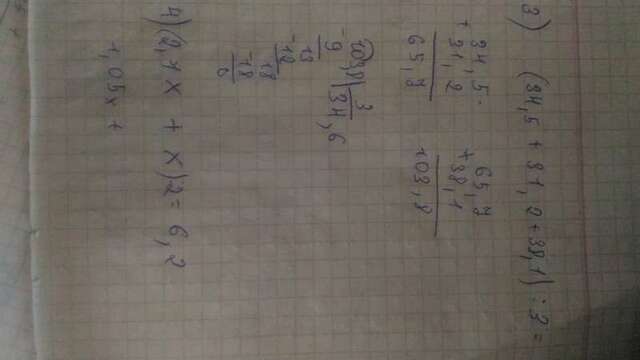 3) (34,5 + 31,2 + 38,1) : 3 =
34,5
+ 31,2
65,7
65,7
+ 38,1
103,8
103,8 | 3
- 9 34,6
13
- 12
18
- 18
0
4) (2,1x + x)2 = 6,2
1,05x +